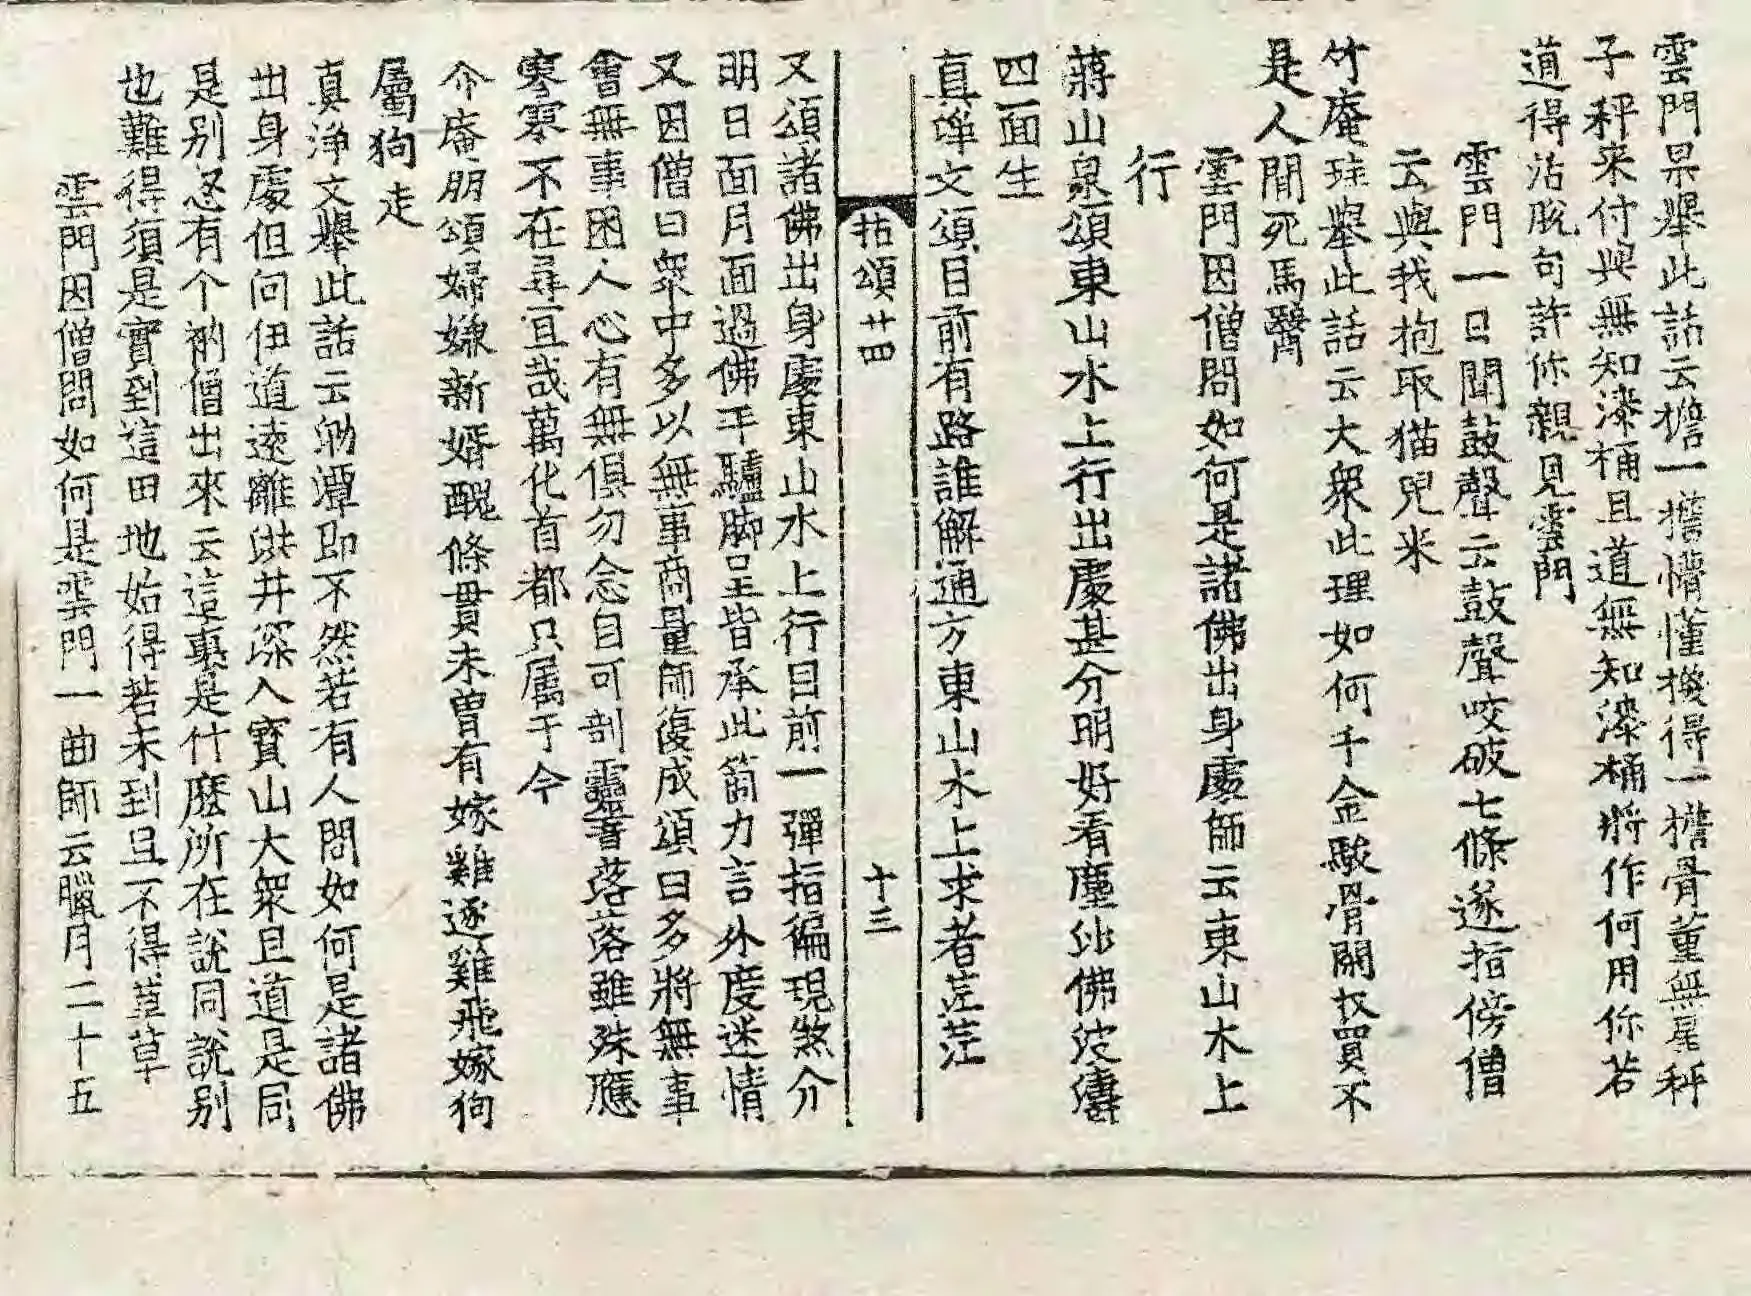 雲門杲舉此話云擔一擔懵懂換得一擔骨董無星秤
子秤来付與無知漆桶且道無知漆桶將作何用你若
道得沾脫句許你親見雲門
雲門一日聞鼓聲云鼓聲咬破七條遂指傍僧
云與我抱取猫兒来
竹庵珪舉此話云大衆此理如何千金駿骨開扠買不
是人間死馬醫
雲門因僧問如何是諸佛出身處師云東山水上
行
蔣山泉頌東山水上行出處甚分明好看塵沙佛波濤
四面生
真淨文頌目前有路誰解通方東山水上求者茫茫
拈頌廿四 十三
又頌諸佛出身處東山水上行目前一彈指徧現煞介
明日面月面過佛手驢脚呈皆承此箇力言外度迷情
又因僧曰衆中多以無事商量師復成頌曰多將無事
會無事困人心有無俱勿念自可剖靈音落落雖殊應
寥寥不在尋亘哉萬化首都只属于今
介庵朋頌婦嫌新婿醜條貫未曽有嫁雞逐雞飛嫁狗
屬狗走
真淨文舉此話云泐潭即不然若有人問如何是諸佛
出身處但向伊道遠離洪井深入寳山大衆且道是同
是别忽有个衲僧出來云這裏是什麽所在說同說别
也難得須是實到這田地始得若未到且不得莽草
雲門因僧問如何是雲門一曲師云臘月二十五